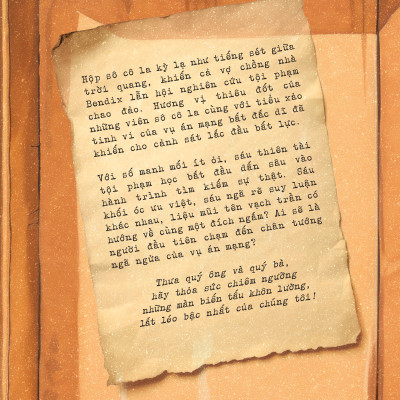 Hộp sô cô la kỳ lạ như tiếng sét giữa
trời quang, khiến cả vợ chồng nhà
Bendix lẫn hội nghiên cứu tội phạm
chao đảo. Hương vị thiêu đốt của
những viên sô cô la cùng với tiểu xảo
tinh vi của vụ án mạng bất đắc dĩ đã
khiến cho cảnh sát lắc đầu bất lực.
Với số manh mối ít ỏi, sáu thiên tài
tội phạm học bắt đầu dấn sâu vào
hành trình tìm kiếm sự thật. Sáu
khối óc ưu việt, sáu ngã rẽ suy luận
khác nhau, liệu mũi tên vạch trần có
hướng về cùng một đích ngắm? Ai sẽ là
người đầu tiên chạm đến chân tướng
ngã ngửa của vụ án mạng?
Thưa quý ông và quý bà,
hãy thỏa sức chiêm ngưỡng
những màn biến tấu khôn lường,
lắt léo bậc nhất của chúng tôi!